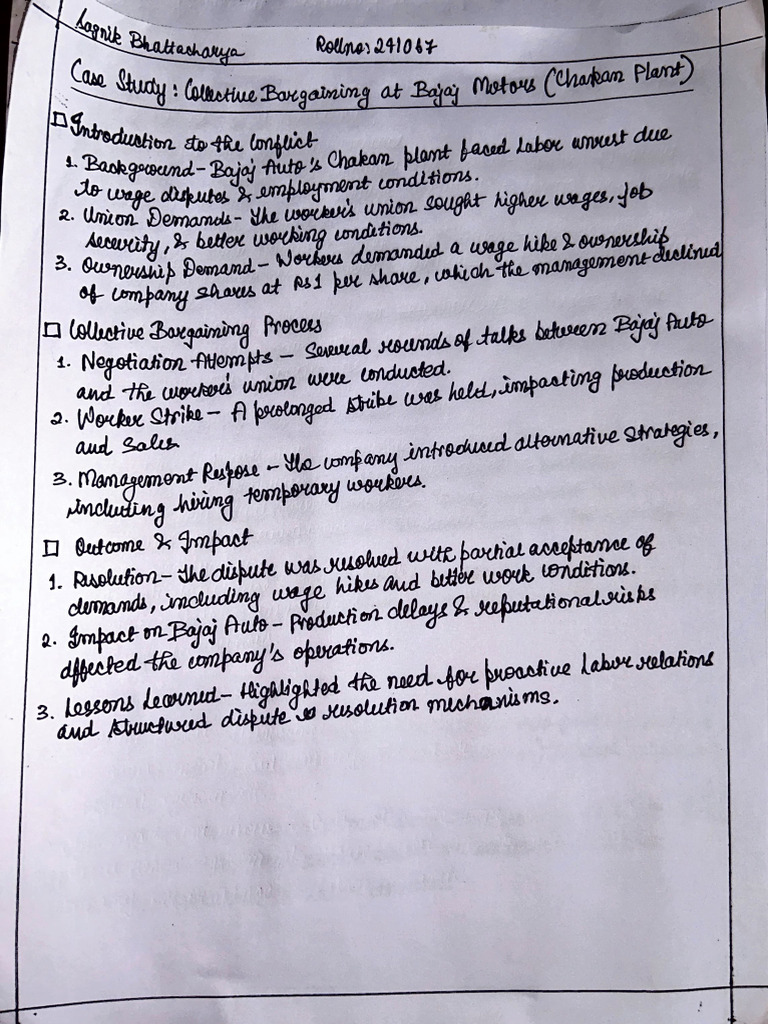 Sagnik Bhattacharya Rollno: 241067
Case Study: Collective Bargaining at Bajaj Motors (Chakan Plant)
Introduction to the Conflict
1. Background - Bajaj Auto's Chakan plant faced Labor unrest due
to wage disputes & employment conditions.
2. Union Demands - The worker's union sought higher wages, job
security, & better working conditions.
3. Ownership Demand - Workers demanded a wage hike & ownership
of company shares at Rs1 per share, which the management declined
Collective Bargaining Process
1. Negotiation Attempts - Several rounds of talks between Bajaj Auto
and the worker's union were conducted.
2. Worker Strike - A prolonged strike was held, impacting production
and Sales
3. Management Respose - The company introduced alternative strategies,
including hiring temporary workers.
Outcome & Impact
1. Resolution - The dispute was resolved with partial acceptance of
demands, including wage hikes and better work conditions.
2. Impact on Bajaj Auto - Production delays & reputational risks
affected the company's operations.
3. Lessons Learned - Highlighted the need for proactive labor relations
and structured dispute resolution mechanisms.